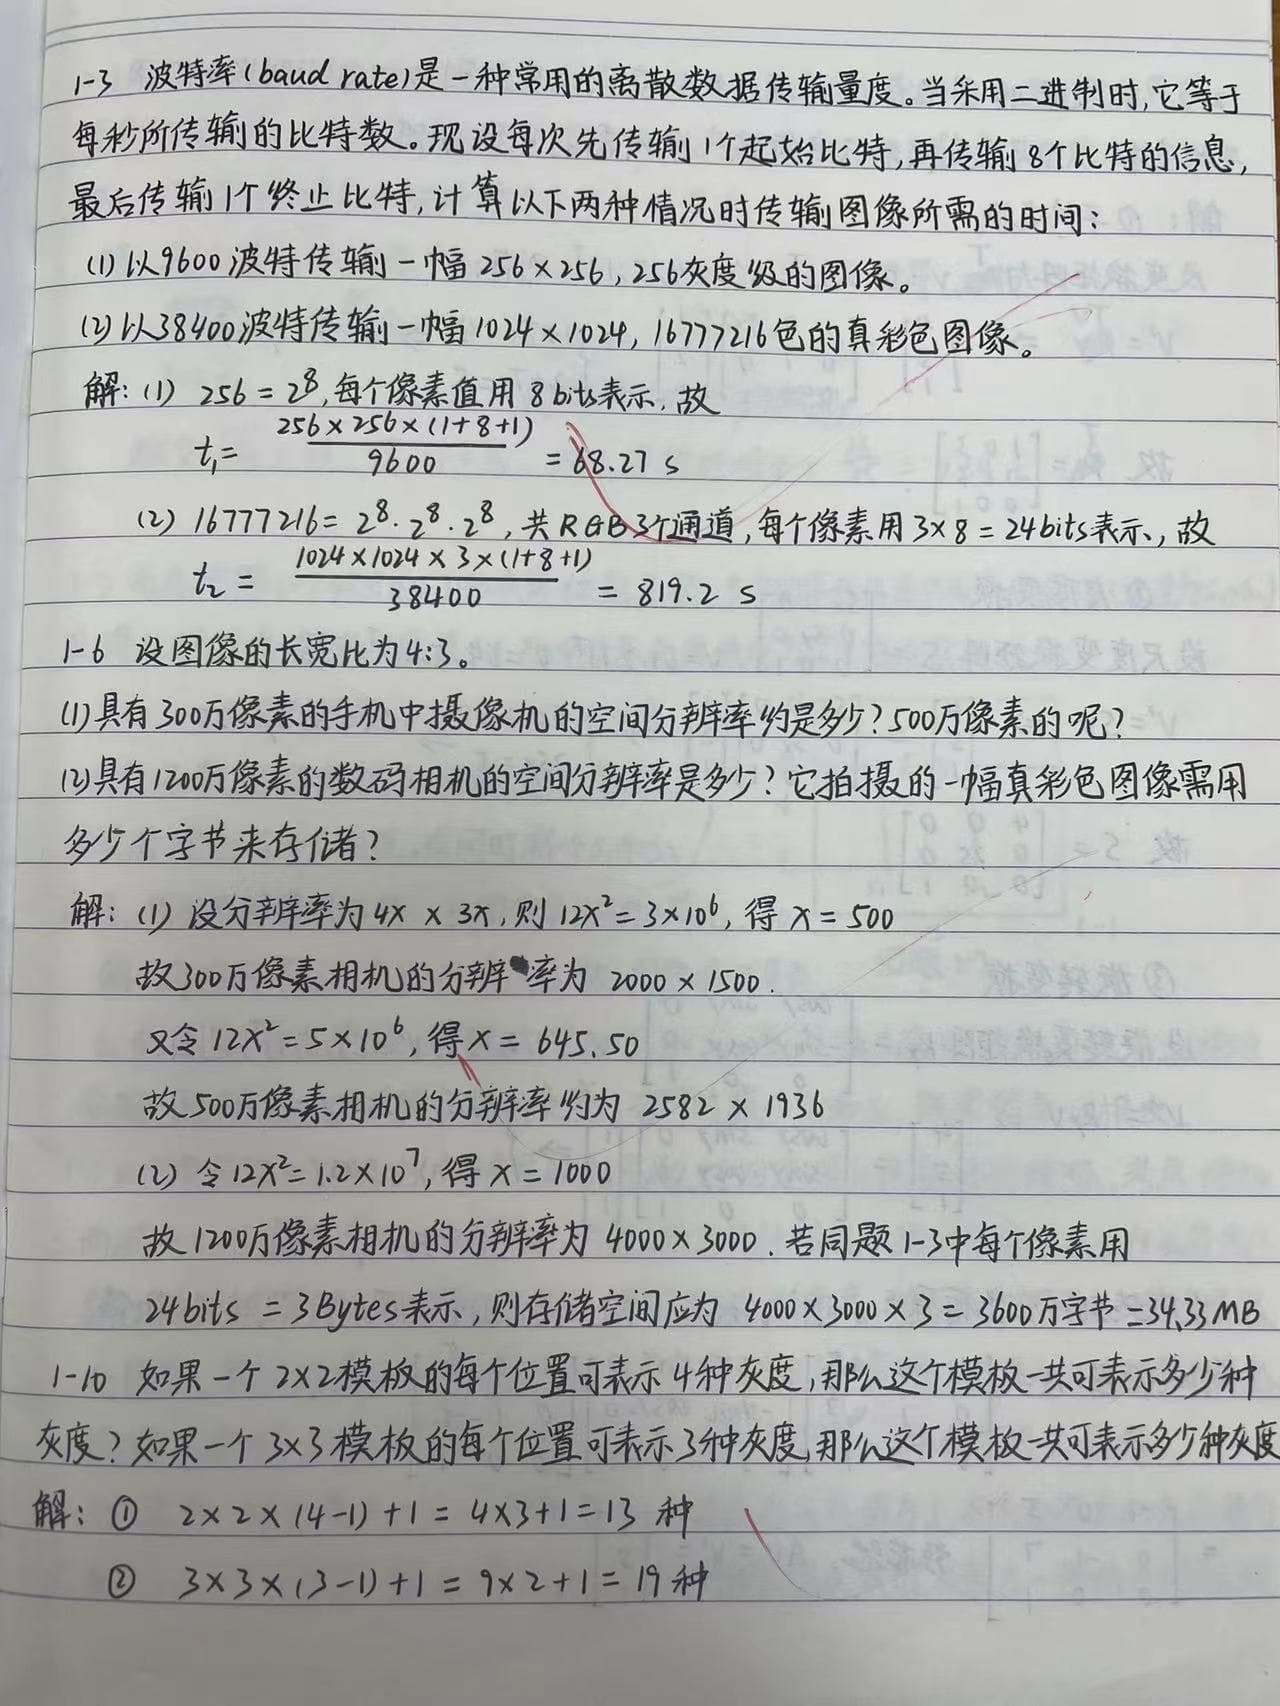 1-3 波特率(baud rate)是一种常用的离散数据传输量度。当采用二进制时,它等于
每秒所传输的比特数。现设每次先传输1个起始比特,再传输8个比特的信息,
最后传输1个终止比特,计算以下两种情况时传输图像所需的时间:
(1)以9600波特传输一幅256×256,256灰度级的图像。
(2)以38400波特传输一幅1024×1024,16777216色的真彩色图像。
解:(1) 256=2^8,每个像素值用8bits表示,故
t₁= 256×256×(1+8+1)/9600 =68.27 s
(2) 16777216=2^8·2^8·2^8,共RGB3个通道,每个像素用3×8=24bits表示,故
t₂= 1024×1024×3×(1+8+1)/38400 =819.2 s
1-6 设图像的长宽比为4:3。
(1)具有300万像素的手机中摄像机的空间分辨率约是多少?500万像素的呢?
(2)具有1200万像素的数码相机的空间分辨率是多少?它拍摄的一幅真彩色图像需用
多少个字节来存储?
解:(1) 设分辨率为4x×3x,则12x²=3×10^6,得x=500
故300万像素相机的分辨率为 2000×1500.
又令12x²=5×10^6,得x=645.50
故500万像素相机的分辨率约为 2582×1936
(2) 令12x²=1.2×10^7,得x=1000
故1200万像素相机的分辨率为4000×3000.若同题1-3中每个像素用
24bits=3Bytes表示,则存储空间应为 4000×3000×3=3600万字节=34.33MB
1-10 如果一个2×2模板的每个位置可表示4种灰度,那么这个模板一共可表示多少种
灰度?如果一个3×3模板的每个位置可表示3种灰度,那么这个模板一共可表示多少种灰度
解:① 2×2×(4-1)+1=4×3+1=13 种
② 3×3×(3-1)+1=9×2+1=19种